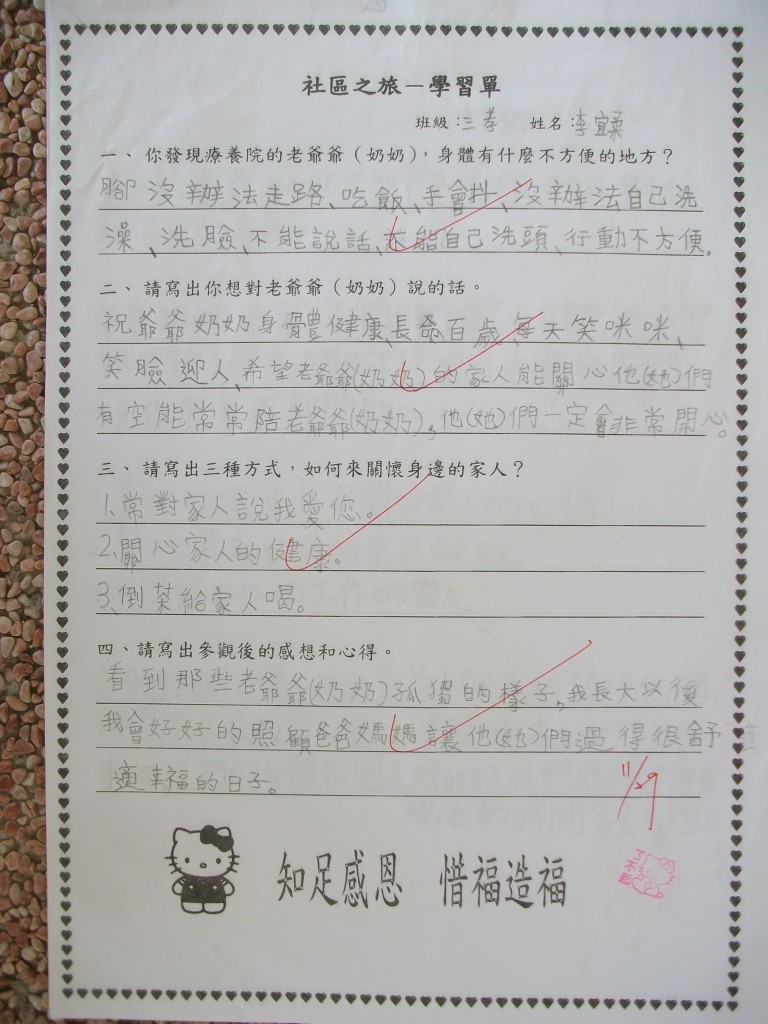 社區之旅－學習單
班級：三孝 姓名：李宜柔
一、你發現療養院的老爺爺（奶奶），身體有什麼不方便的地方？
腳沒辦法走路、吃飯、手會抖、沒辦法自己洗
澡、洗臉、不能說話、不能自己洗頭、行動不方便。
二、請寫出你想對老爺爺（奶奶）說的話。
祝爺爺奶奶身體健康、長命百歲、每天笑咪咪、
笑臉迎人、希望老爺爺(奶奶)的家人能關心他(她)們
有空能常常陪老爺爺(奶奶)，他(她)們一定會非常開心。
三、請寫出三種方式，如何來關懷身邊的家人？
1、常對家人說我愛您。
2、關心家人的健康。
3、倒茶給家人喝。
四、請寫出參觀後的感想和心得。
看到那些老爺爺(奶奶)孤獨的樣子，我長大以後
我會好好的照顧爸爸媽媽讓他(她)們過得很舒
適幸福的日子。
11/29
了不起
知足感恩 惜福造福